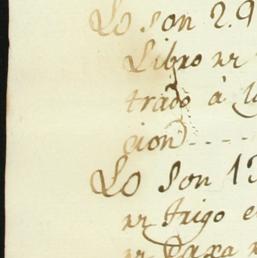 Lo son 2.9
Libro nr
trado à la
cion)
Lo Son 13
nr Trigo e
nr Daxa n